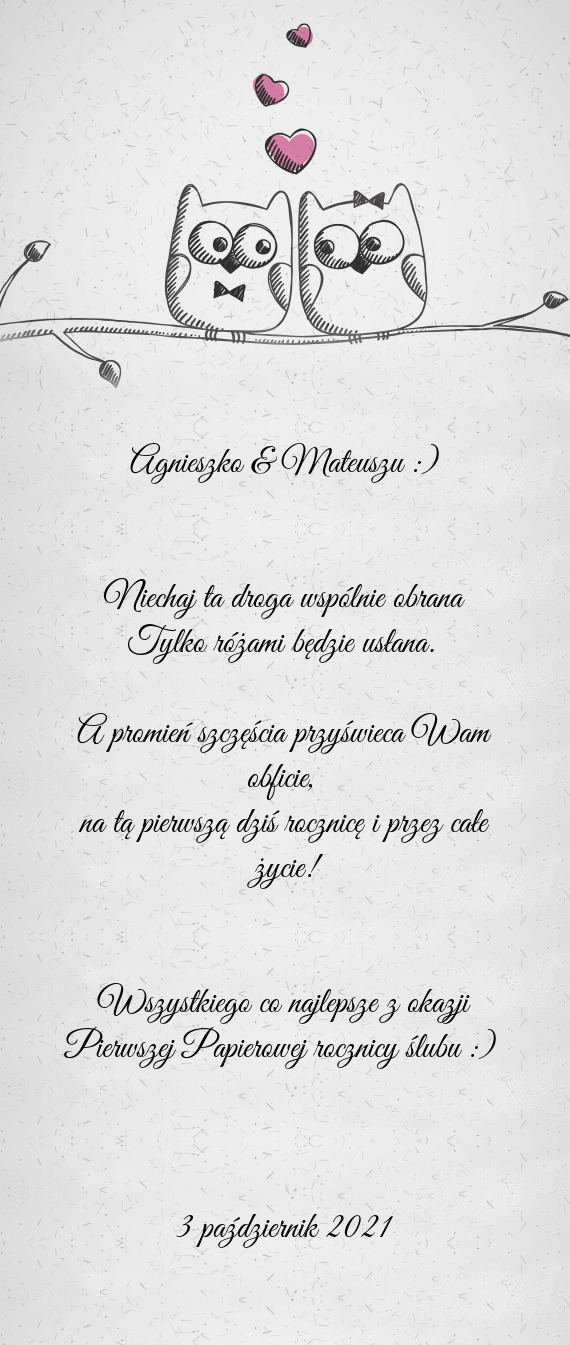 Agnieszko & Mateuszu :)
Niechaj ta droga wspólnie obrana
Tylko różami będzie usłana.
A promień szczęścia przyświeca Wam
obficie,
na tą pierwszą dziś rocznicę i przez całe
życie!
Wszystkiego co najlepsze z okazji
Pierwszej Papierowej rocznicy ślubu :)
3 październik 2021